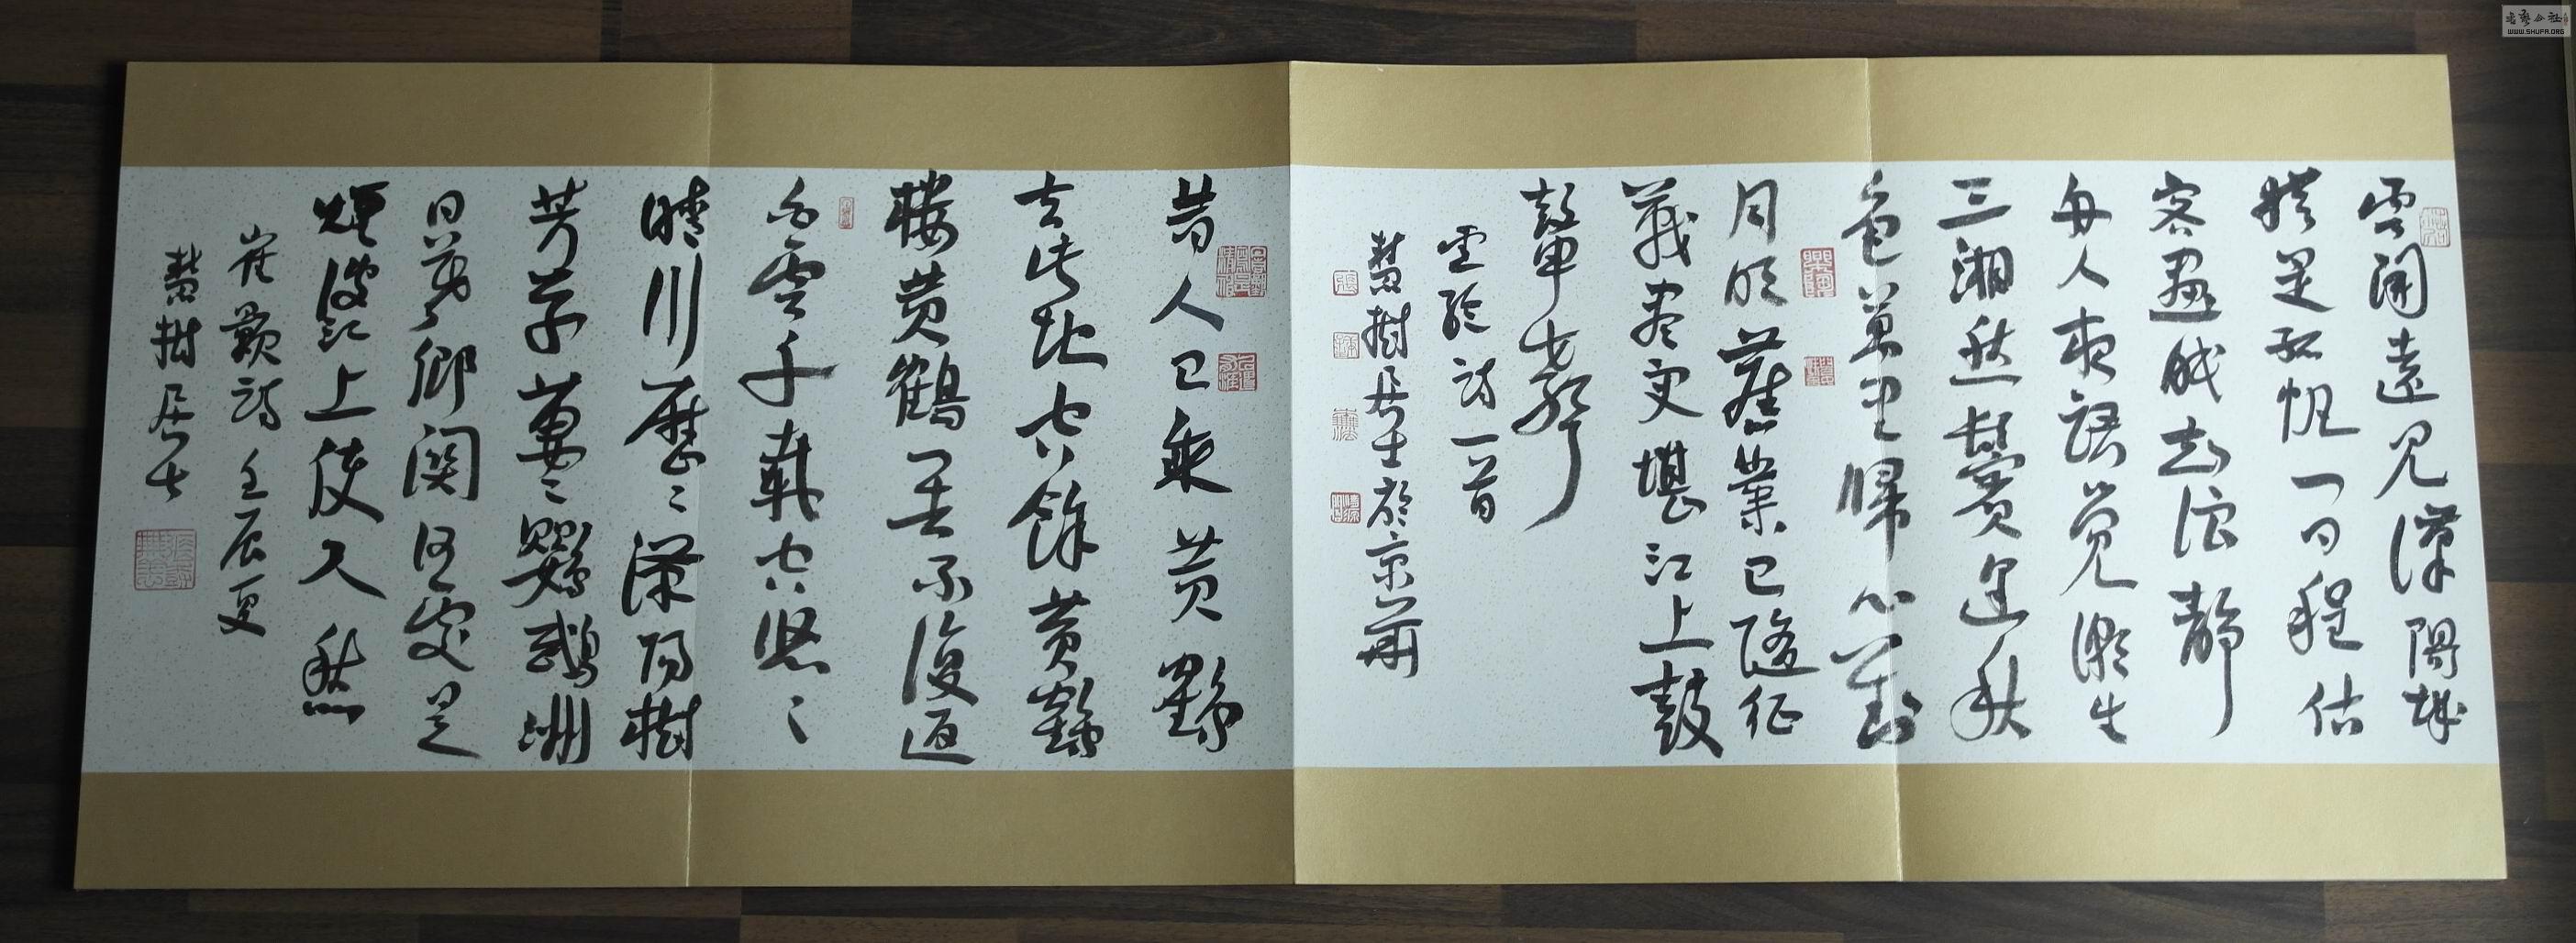 雲開遠見漢陽城
猶是孤帆一日程估
客晝眠知浪靜
舟人夜語覺潮生
三湘愁鬢逢秋
色萬里歸心對
月明舊業已隨征
戰盡更堪江上鼓
鼙聲
盧綸詩一首
慧樹居士於京華
昔人已乘黃鶴
去此地空餘黃鶴
樓黃鶴一去不復返
白雲千載空悠々
晴川歷々漢陽樹
芳草萋々鸚鵡洲
日暮鄉關何處是
煙波江上使人愁
崔顥詩壬辰夏
慧樹居士
WWW.SHUFA.ORG